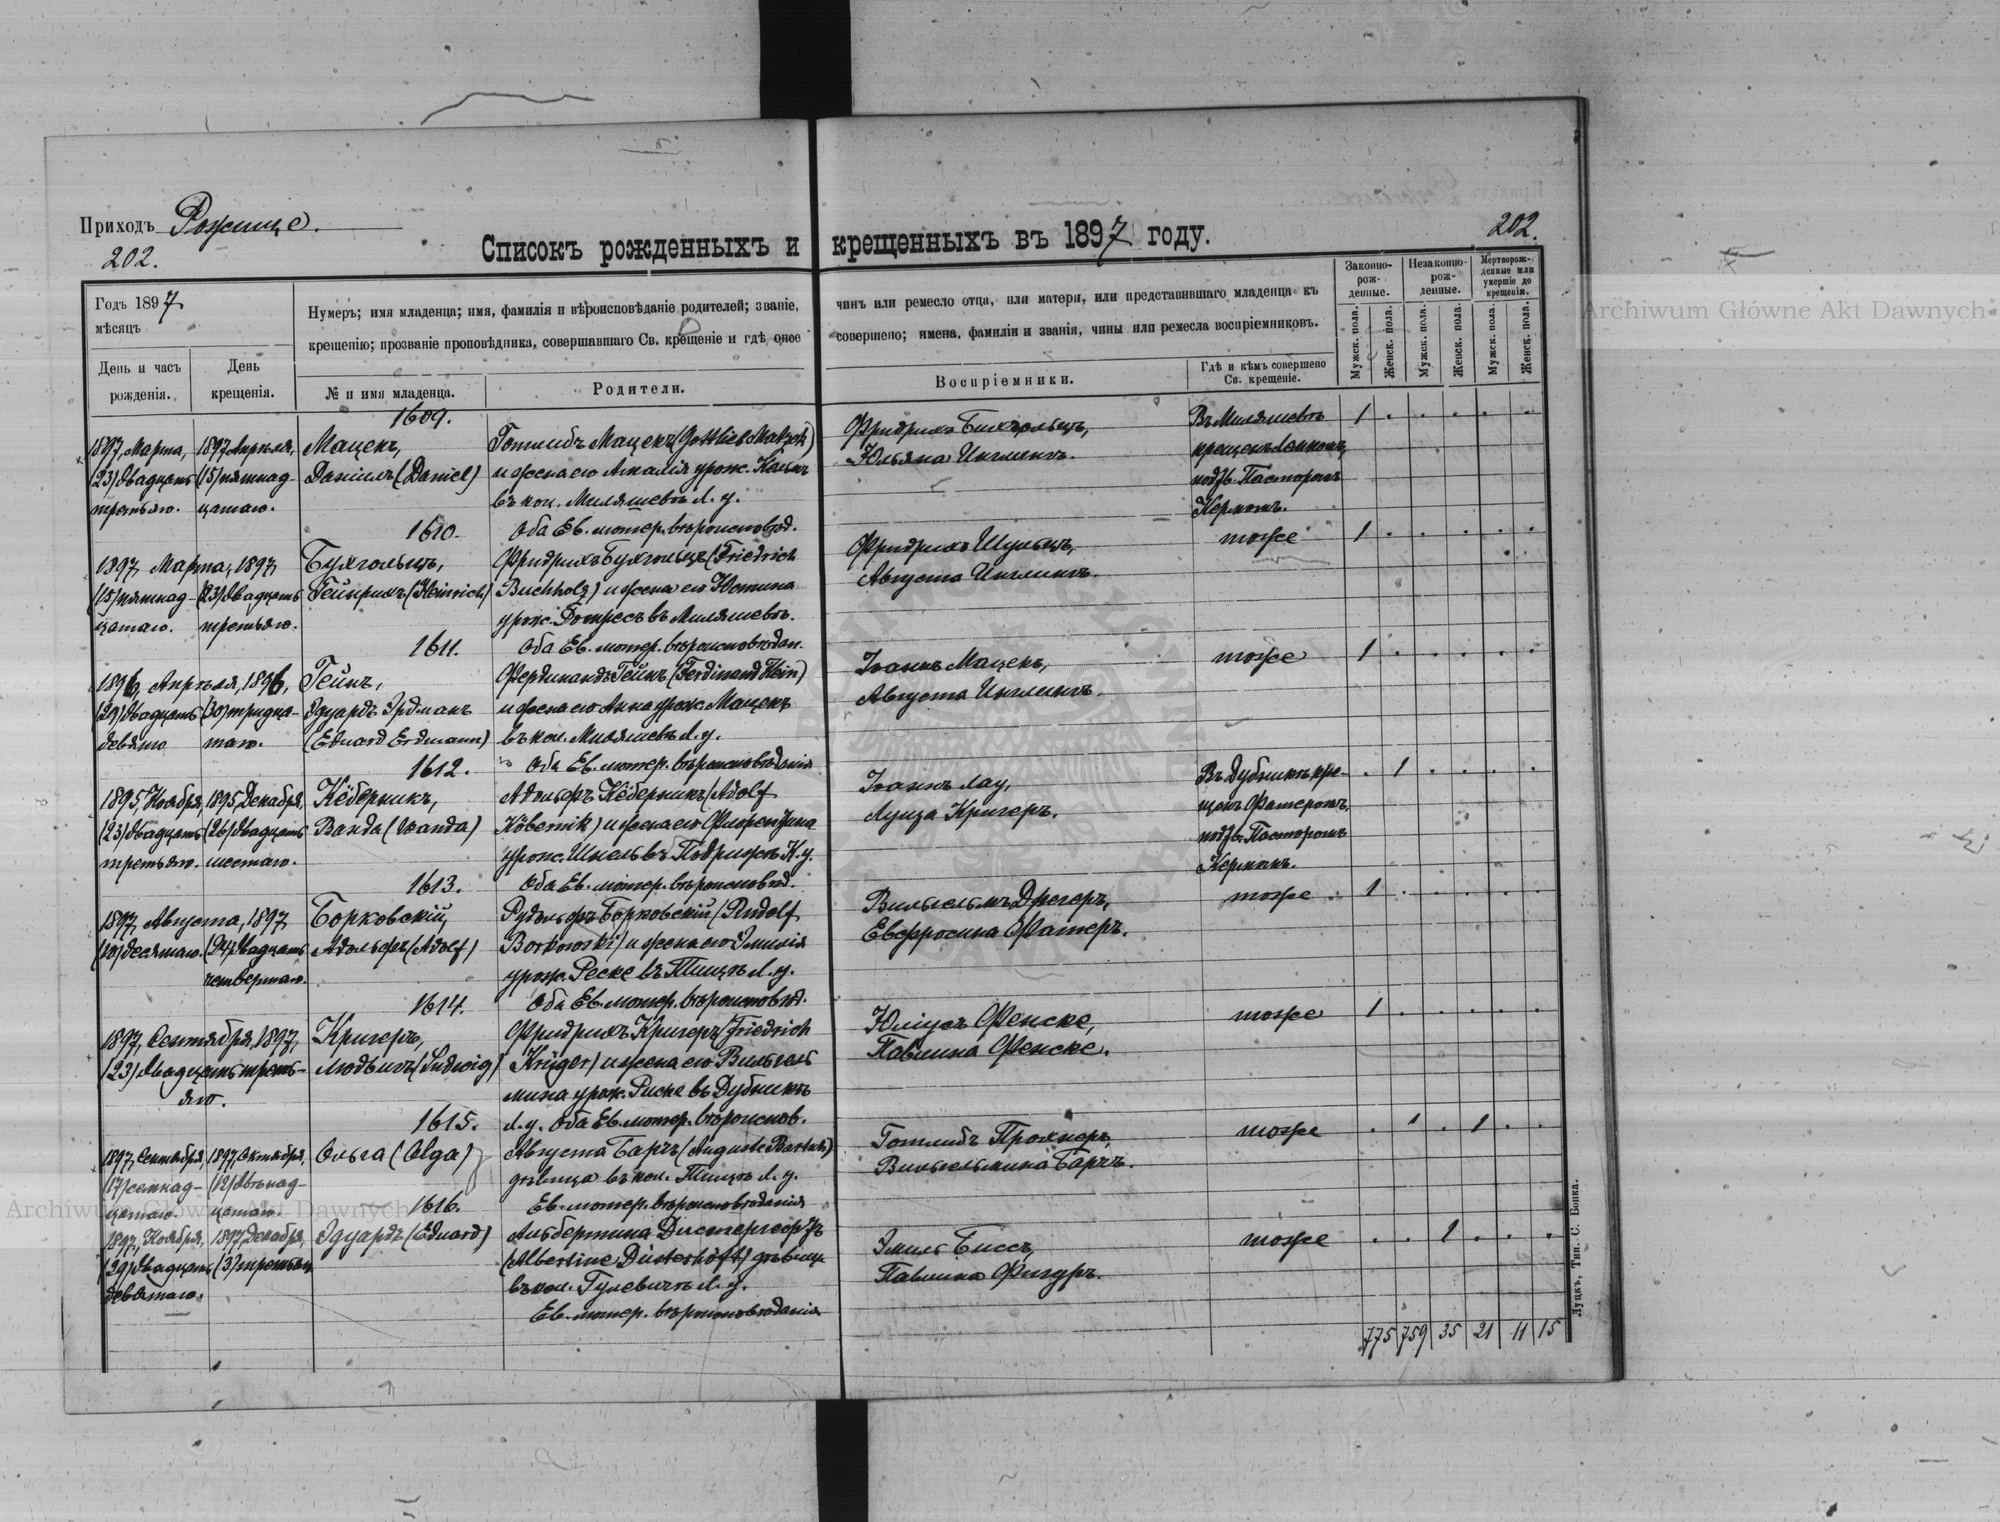 Приходъ Рожище.
202.
202.
Списокъ рожденныхъ и крещенныхъ въ 1897 году.
Годъ 1897
мѣсяцъ
День и часъ рожденія.
День крещенія.
Нумеръ; имя младенца; имя, фамилія и вѣроисповѣданіе родителей; званіе, чинъ или ремесло отца, или матери, или представившаго младенца къ
крещенію; прозваніе проповѣдника, совершавшаго Св. крещеніе и гдѣ оное совершено; имена, фамиліи и званія, чины или ремесла воспріемниковъ.
№ и имя младенца.
Родители.
Воспріемники.
Гдѣ и кѣмъ совершено Св. крещеніе.
Законно-рож-денные.
Незаконно-рож-денные.
Мертворож-денные или умершіе до крещенія.
Мужск. пола.
Женск. пола.
Мужск. пола.
Женск. пола.
Мужск. пола.
Женск. пола.
1609.
1897, Марта,
(23) двадцать
третьяго.
1897 Апрѣля,
(15) пятнад-
цатаго.
Мацекъ,
Даніилъ (Daniel)
Готлибъ Мацекъ (Gottlieb Matzek)
и жена его Амалія урож.
въ кол. Миляшевѣ Л. у.
Оба Ев. лютер. вѣроисповѣд.
Фридрихъ Бухгольцъ,
Юльяна Инглингъ.
Въ Миляшевѣ
крещенъ
подтв. Пасторомъ
Керномъ.
1 . . . . .
1610.
1897, Марта, 1897,
(15) пятнад-
цатаго.
(23) двадцать
третьяго.
Бухгольцъ,
Гейнрихъ (Heinrich)
Фридрихъ Бухгольцъ (Friedrich
Buchholz) и жена его Юстина
урож. въ Миляшевѣ.
Оба Ев. лютер. вѣроисповѣдан.
Фридрихъ Шульцъ,
Августа Инглингъ.
тоже
1 . . . . .
1611.
1896, Апрѣля, 1896,
(29) двадцать
девято
(30) тридца-
таго.
Гейнъ,
Эдуардъ Эрдманъ
(Eduard Erdmann)
Фердинандъ Гейнъ (Ferdinand Hein)
и жена его Анна урож. Мацекъ
въ кол. Миляшевѣ Л. у.
Оба Ев. лютер. вѣроисповѣданія
Іоаннъ Мацекъ,
Августа Инглингъ.
тоже
1 . . . . .
1612.
1895, Ноября,
(23) двадцать
третьяго.
1895, Декабря,
(26) двадцать
шестаго.
Кёберникъ,
Ванда (Wanda)
Адольфъ Кёберникъ (Adolf
Köbernik) и жена его Флорентина
урож. Шнель въ К. у.
Оба Ев. лютер. вѣроисповѣд.
Іоаннъ Лау,
Луиза Кригеръ.
Въ Дубникѣ кре-
щенъ Фатеромъ,
подтв. Пасторомъ
Керномъ.
. 1 . . . .
1613.
1897, Августа, 1897
(10) десятаго.
(24) двадцать
четвертаго.
Борковскій,
Адольфъ (Adolf)
Рудольфъ Борковскій (Rudolf
Borkowski) и жена его Эмилія
урож. Реске въ Л. у.
Оба Ев. лютер. вѣроисповѣд.
Вильгельмъ Дрегеръ,
Евфросина Фатеръ.
тоже
1 . . . . .
1614.
1897, Сентября, 1897,
(23) двадцать треть-
яго.
Кригеръ,
Людвигъ (Ludwig)
Фридрихъ Кригеръ (Friedrich
Krüger) и жена его Вильгель
мина урож. Риске въ Дубникѣ
Л. у. Оба Ев. лютер. вѣроиспов.
Юліусъ Фенске,
Павлина Фенске.
тоже
1 . . . . .
1615.
1897, Сентября,
(17) семнад-
цатаго.
1897, Октября,
(12) двѣнад-
цатаго.
Ольга (Olga)
Августа Барчъ (Auguste)
дѣвица въ кол. Л. у.
Ев. лютер. вѣроисповѣданія
Готлибъ
Вильгельмина Барчъ.
тоже
. 1 . 1 . .
1616.
1897, Ноября,
(29) двадцать
девятаго.
1897, Декабря,
(3) третьяго
Эдуардъ (Eduard)
Альбертина Дистергефтъ
(Albertine Düsterhöft) дѣвица
въ кол. Гулевичѣ Л. у.
Ев. лютер. вѣроисповѣданія
Эмиль Биссъ,
Павлина Фигуръ.
тоже
. . 1 . . .
775 759 35 21 11 15
Луцкъ, Тип. С. Бонка.
Archiwum Główne Akt Dawnych
Archiwum Główne Akt Dawnych